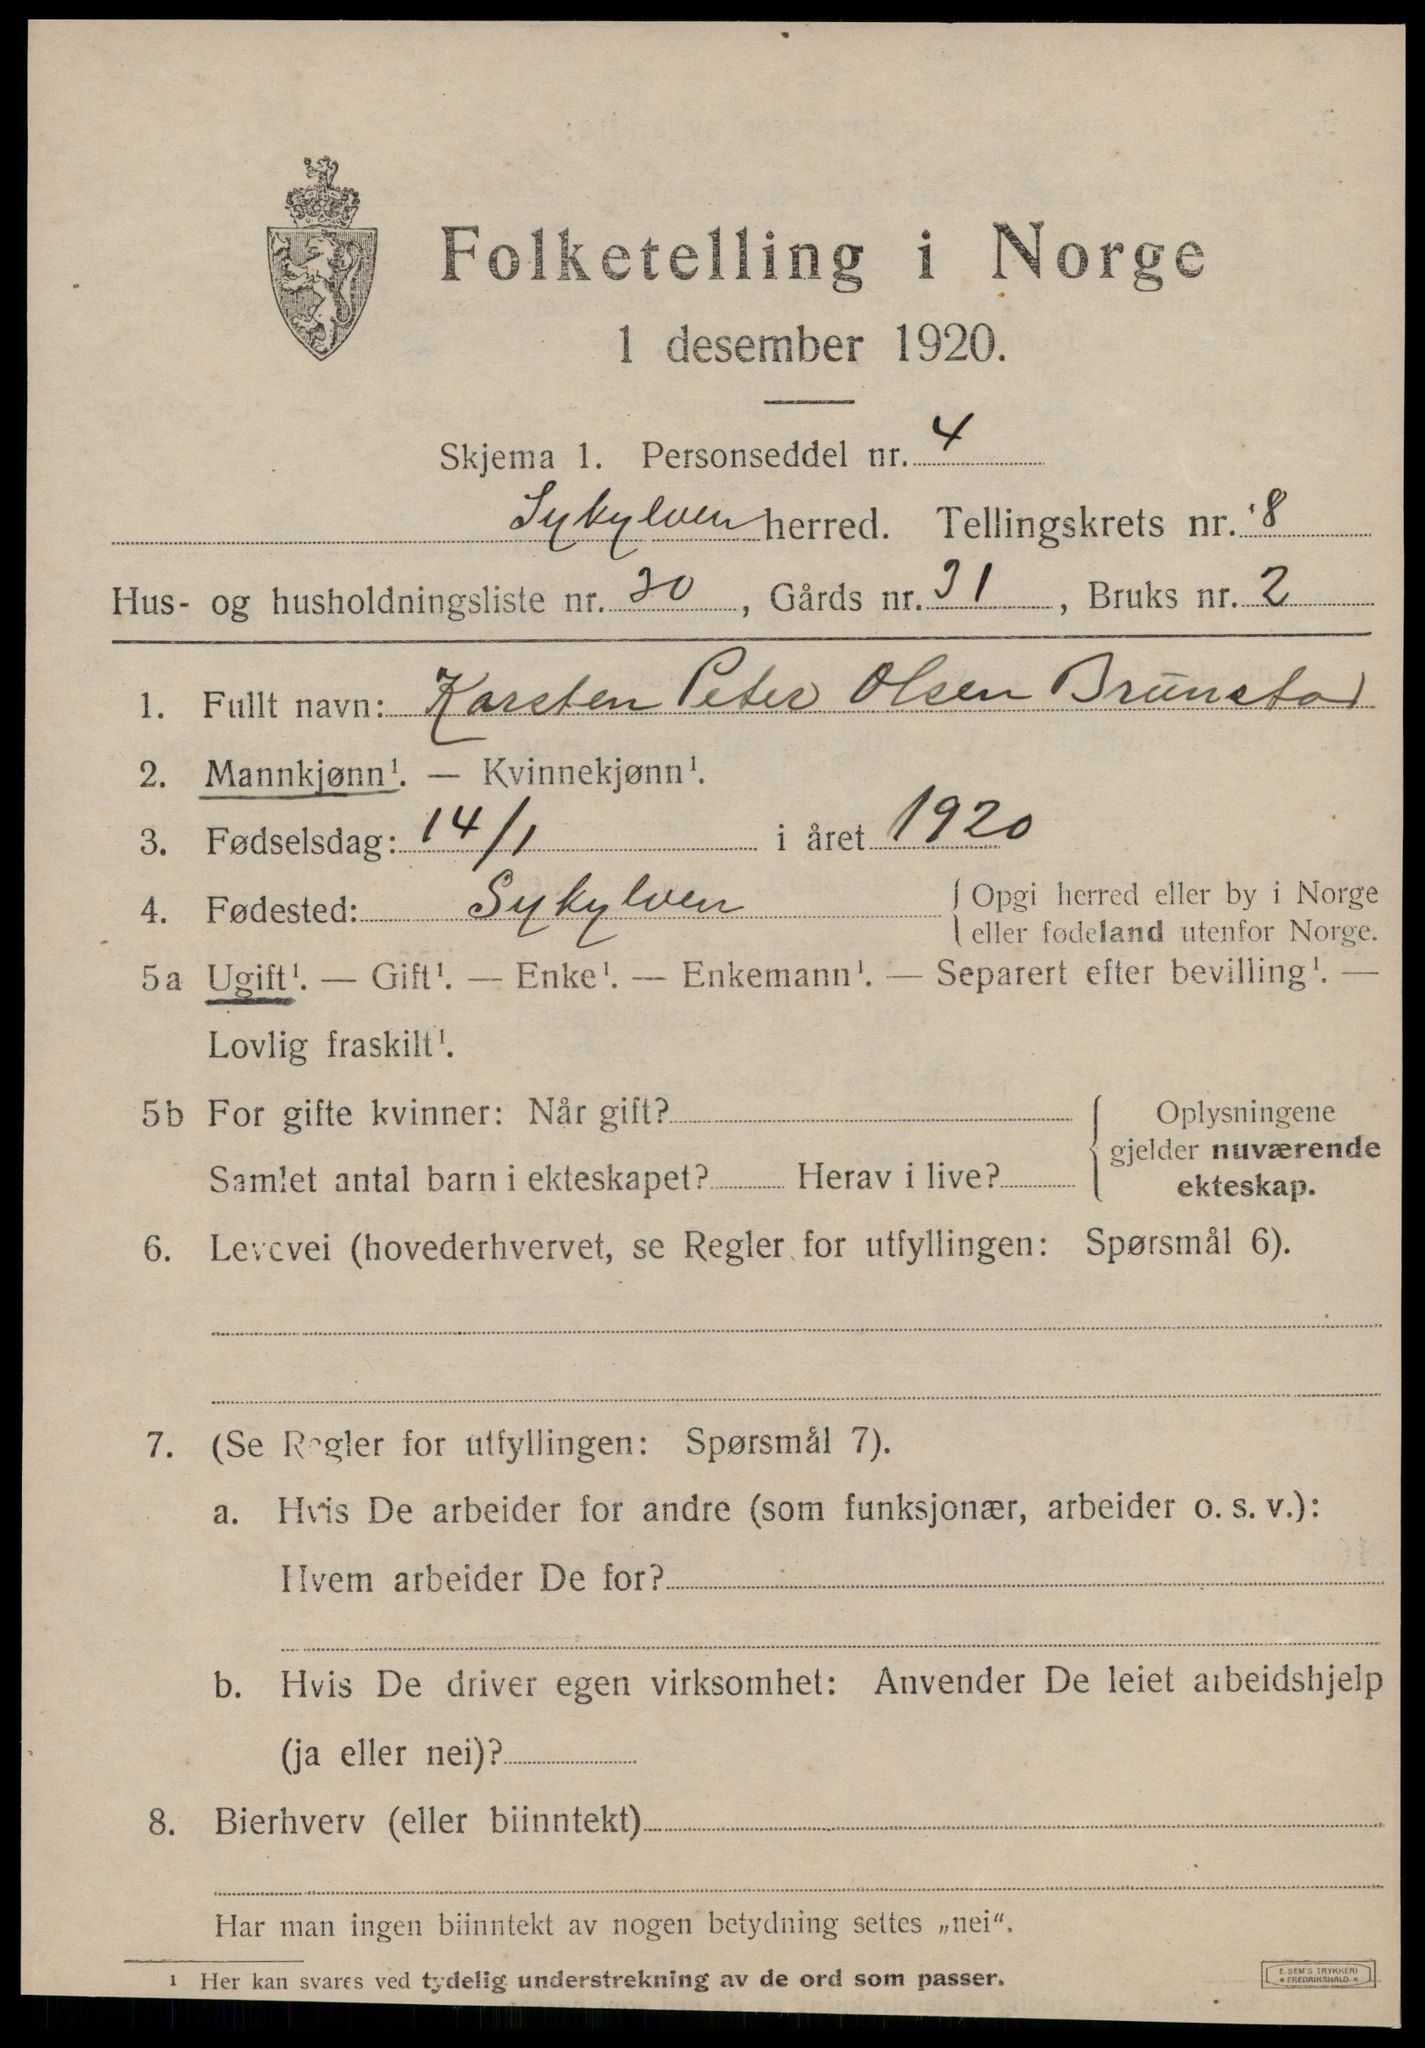 Folketelling i Norge
1 desember 1920.
Skjema 1. Personseddel nr. 4
Sykylven herred. Tellingskrets nr. 8
Hus- og husholdningsliste nr. 30, Gårds nr. 31, Bruks nr. 2
1. Fullt navn: Karsten Peter Olsen Brunstad
2. Mannkjønn¹. — Kvinnekjønn¹.
3. Fødselsdag: 14/1 i året 1920
4. Fødested: Sykylven { Opgi herred eller by i Norge
eller fødeland utenfor Norge.
5a Ugift¹. — Gift¹. — Enke¹. — Enkemann¹. — Separert efter bevilling¹. —
Lovlig fraskilt¹.
5b For gifte kvinner: Når gift? { Oplysningene
gjelder nuværende
Samlet antal barn i ekteskapet? Herav i live? ekteskap.
6. Levevei (hovederhvervet, se Regler for utfyllingen: Spørsmål 6).
7. (Se Regler for utfyllingen: Spørsmål 7).
a. Hvis De arbeider for andre (som funksjonær, arbeider o. s. v.):
Hvem arbeider De for?
b. Hvis De driver egen virksomhet: Anvender De leiet arbeidshjelp
(ja eller nei)?
8. Bierhverv (eller biinntekt)
Har man ingen biinntekt av nogen betydning settes „nei“.
¹ Her kan svares ved tydelig understrekning av de ord som passer.
E. SEM'S TRYKKERI
FREDRIKSHALD